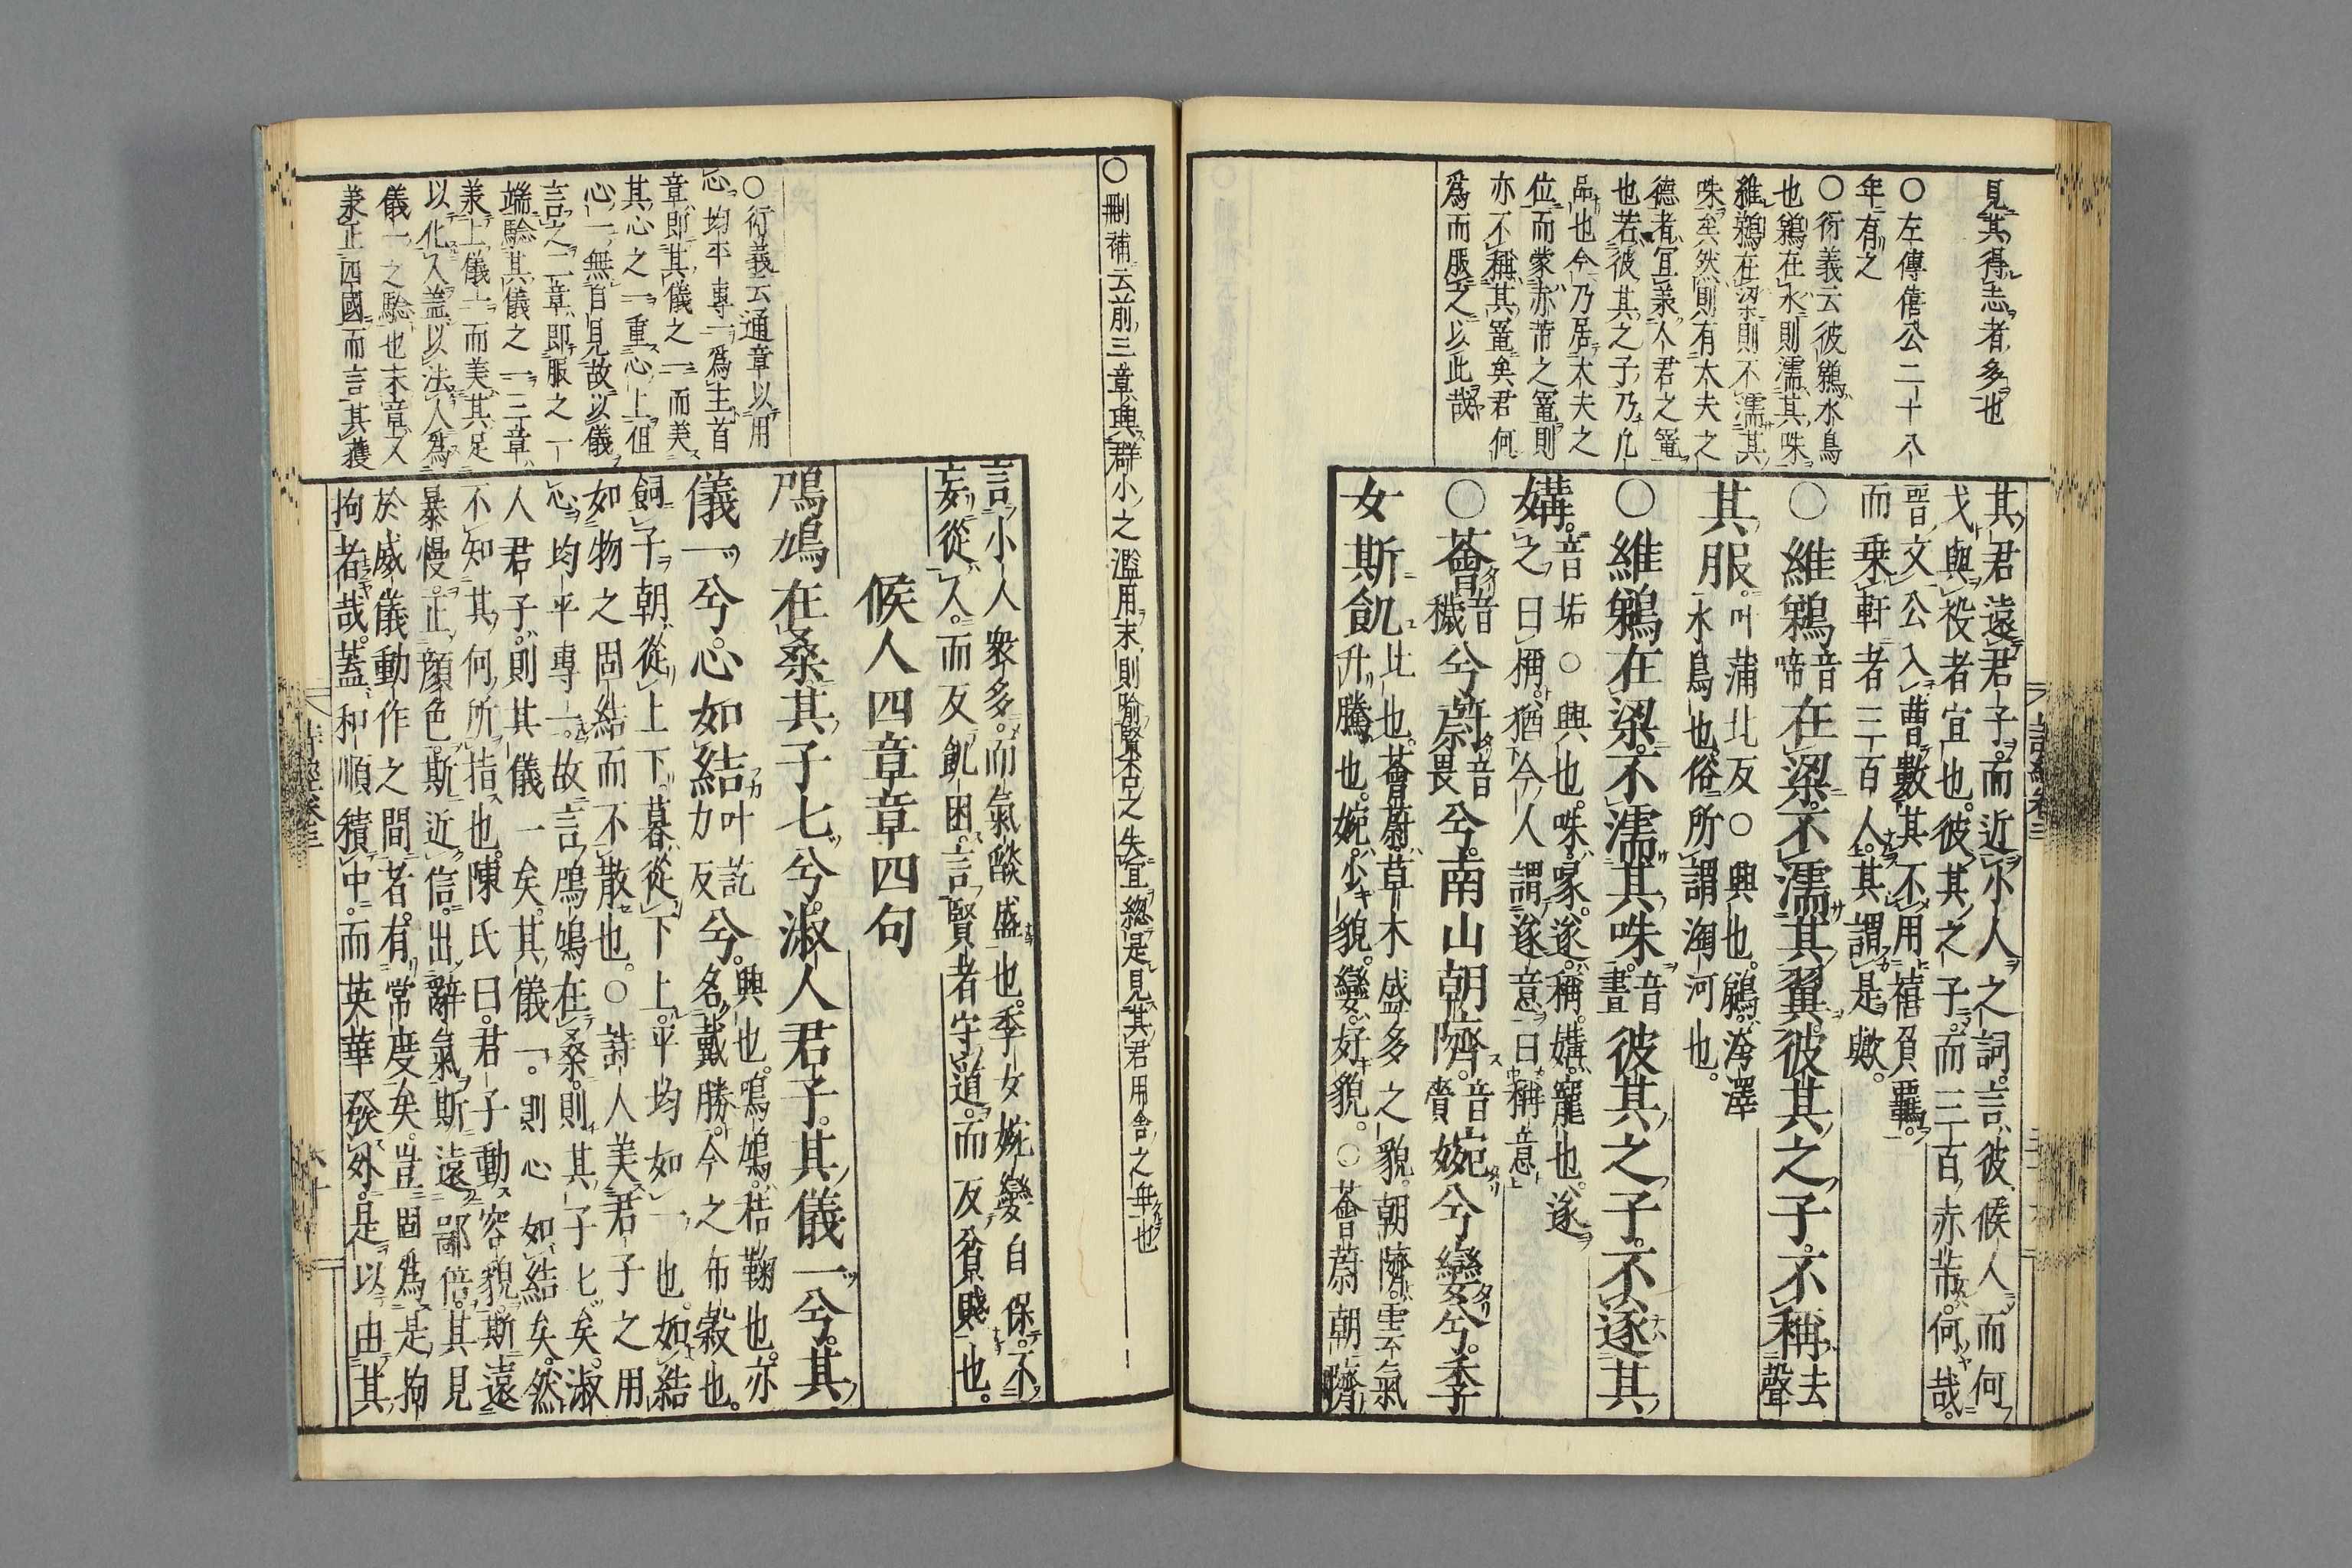 見其得志者多也
○左傳僖公二十八
年有之
○衍義云彼鵜水鳥
也鵜在水則濡其咮
維鵜在梁則不濡其
咮矣然則有大夫之
德者宜羕人君之寵
也若彼其之子乃凡
品也今乃居大夫之
位而蒙赤芾之寵則
亦不稱其寵矣君何
爲而服之以此哉
其君遠君子而近小人之詞言彼候人而何
戈與祋者宜也彼其之子而三百赤芾何哉
晉文公入曹數其不用僖負羈
而乗軒者三百人其謂是歟
○維鵜音啼在梁不濡其翼彼其之子不稱去聲
其服叶蒲北反○興也鵜洿澤水鳥也俗所謂淘河也
○維鵜在梁不濡其咮音晝彼其之子不遂其
媾音垢○興也咮喙遂稱媾寵也遂之曰稱猶今人謂遂意曰稱意
○薈音穢兮蔚音畏兮南山朝隮音賷婉兮孌兮季
女斯飢比也薈蔚草木盛多之貌朝隮雲氣升騰也婉少貌孌好貌○薈蔚朝隮
○刪補云前三章興群小之濫用末則喻賢否之失宜總是見其君用舍之舛也
言小人衆多而氣燄盛也季女婉孌自保不
妄從人而反飢困言賢者守道而反貧賤也
候人四章章四句
鳲鳩在桑其子七兮淑人君子其儀一兮其
儀一兮心如結叶訖力反兮興也鳲鳩秸鞠也亦名戴勝今之布穀也
飼子朝從上下暮從下上平均如一也如結
如物之固結而不散也○詩人美君子之用
心均平專一故言鳲鳩在桑則其子七矣淑
人君子則其儀一矣其儀一則心如結矣然
不知其何所指也陳氏曰君子動容貌斯遠
暴慢正顔色斯近信出辭氣斯遠鄙倍其見
於威儀動作之間者有常度矣豈固爲是拘
拘者哉葢和順積中而英華發外是以由其
○衍義云通章以用
心均平專一爲主首
章即其儀之一而美
其心之一重心上但
心一無自見故以儀
言之二章即服之一
端驗其儀之一三章
羕上儀一而美其足
以化人蓋以法人爲
儀一之驗也末章又
羕正四國而言其獲